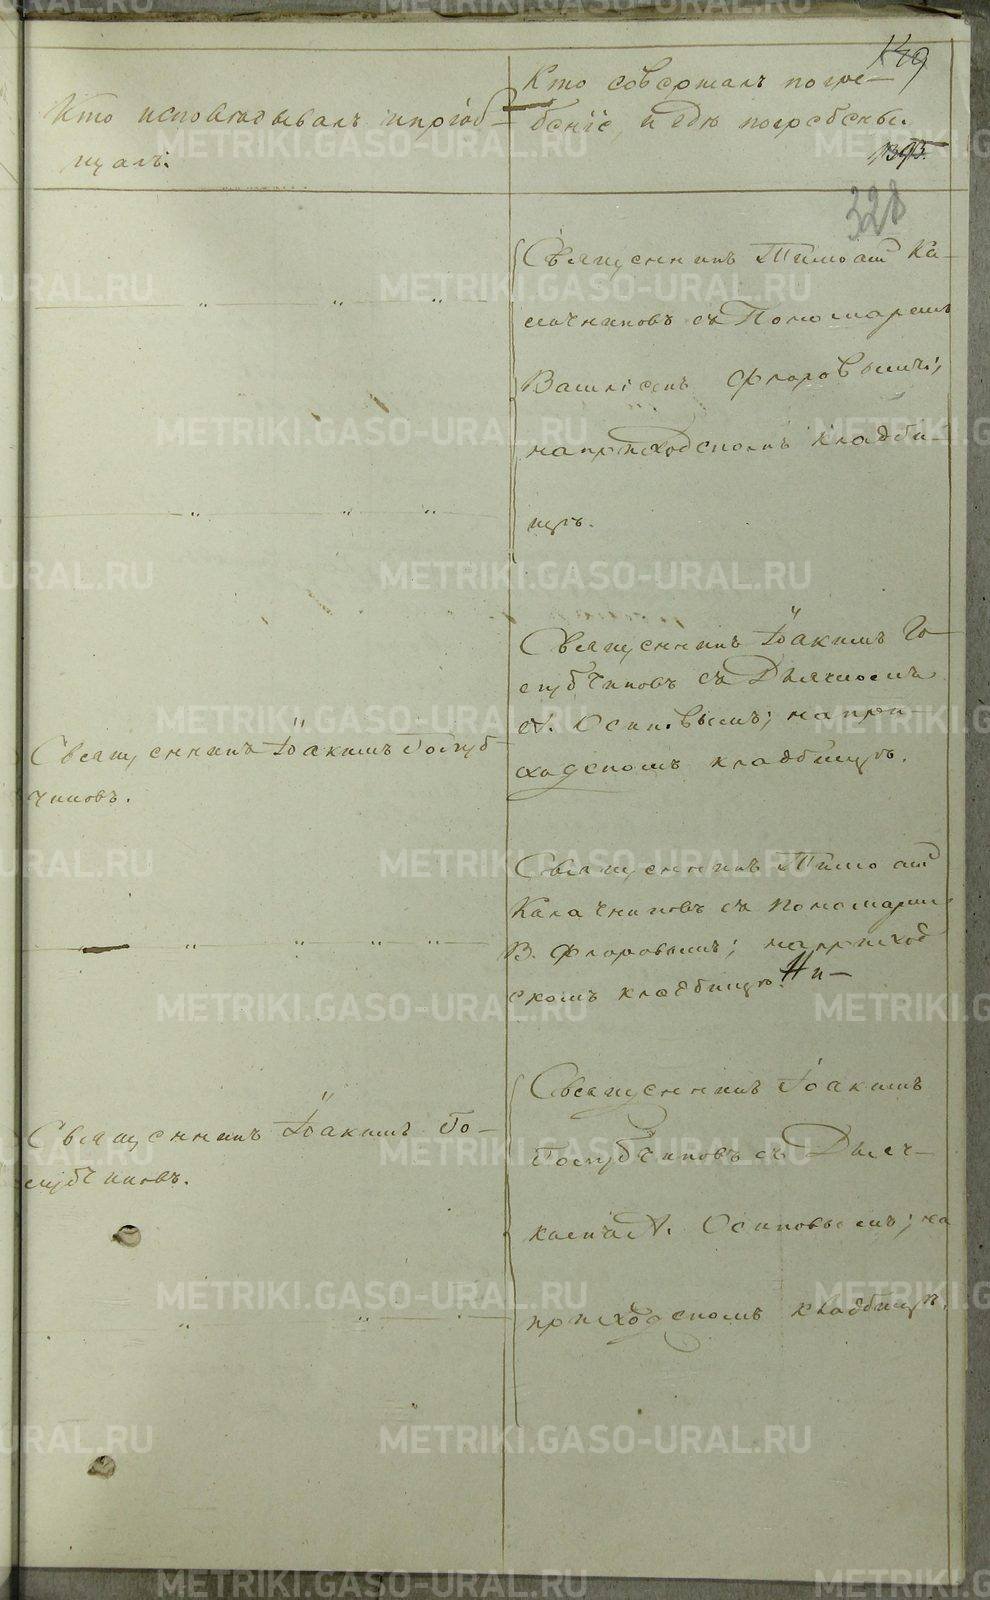 149
Кто исповѣдывалъ и пріоб-
щалъ.
Кто совершалъ погре-
беніе, и гдѣ погребены.
1395.
328
Священникъ Тимоѳей Ка-
лачниковъ съ Пономаремъ
Василіемъ Флоровымъ;
на приходскомъ кладби-
щѣ.
Священникъ Іоакимъ Го-
лубчиковъ съ Дьячкомъ
А. Осиповымъ; на при-
ходскомъ кладбищѣ.
Священникъ Іоакимъ Голуб-
чиковъ.
Священникъ Тимоѳей
Калачниковъ съ пономаремъ
В. Флоровымъ; на приход
скомъ кладбищѣ.
Священникъ Іоакимъ Го-
лубчиковъ.
Священникъ Іоакимъ
Голубчиковъ съ Дьяч-
комъ А. Осиповымъ; на
приходскомъ кладбищѣ.
METRIKI.GASO-URAL.RU